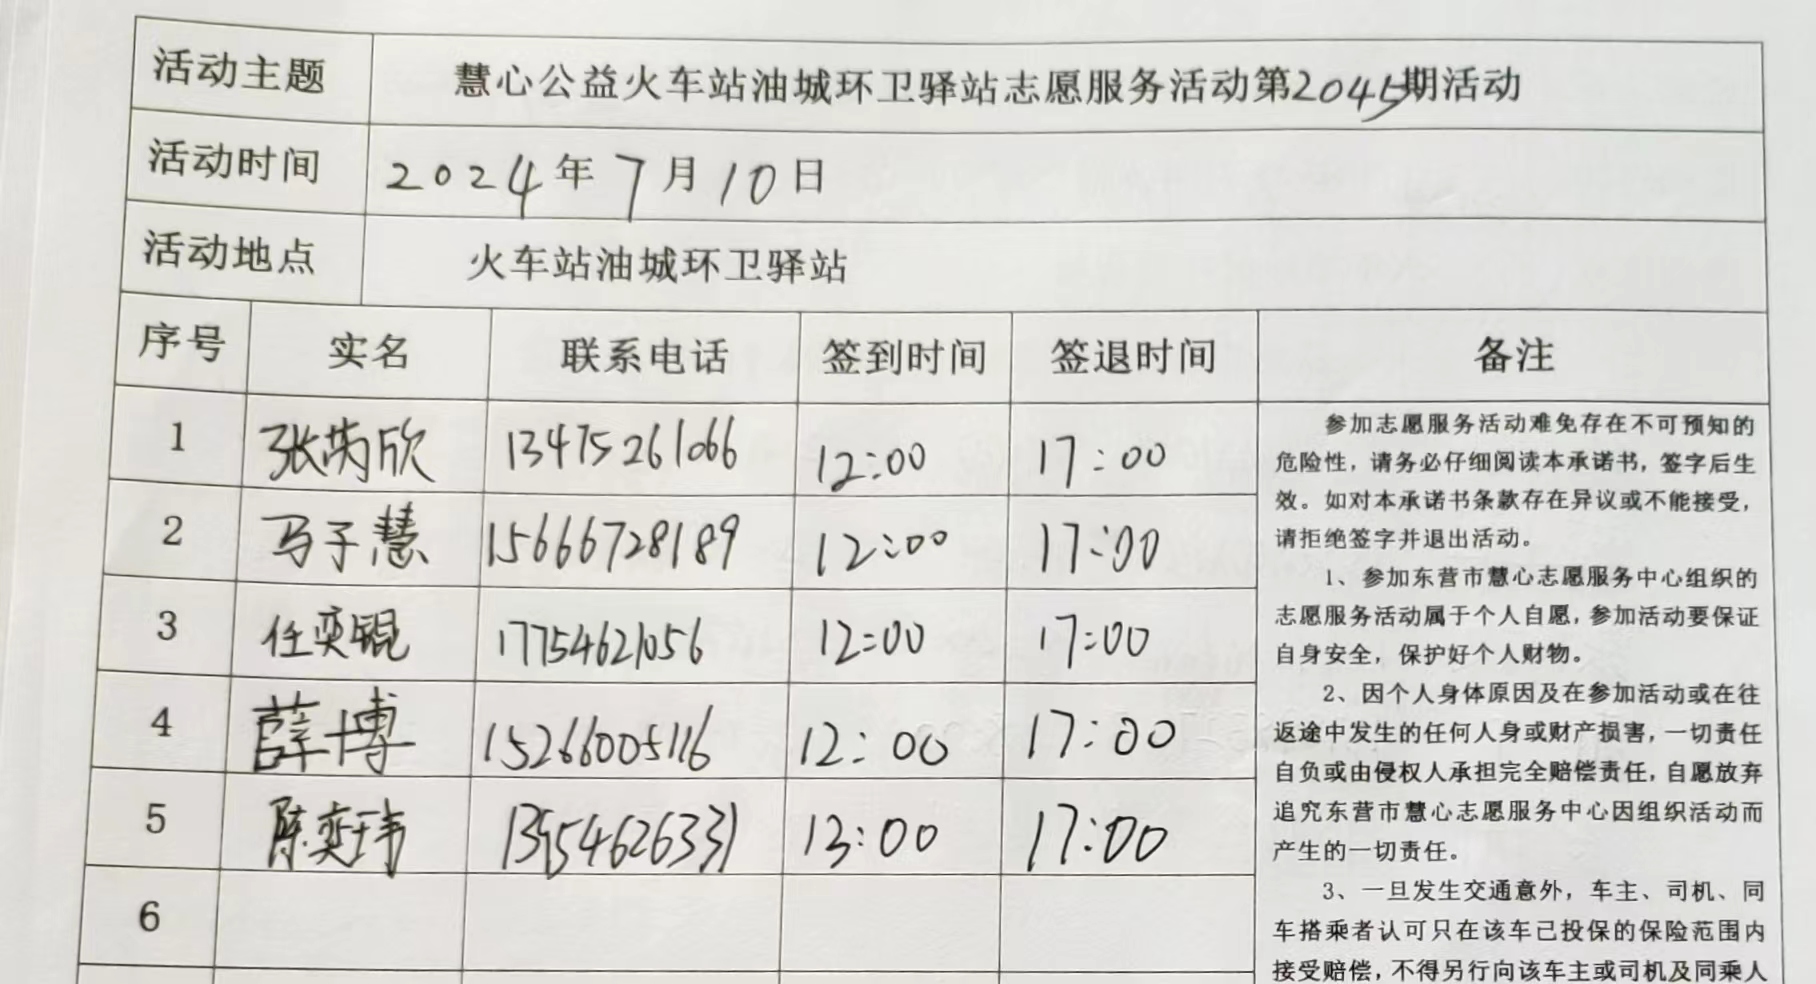 活动主题 慧心公益火车站油城环卫驿站志愿服务活动第2045期活动
活动时间 2024年7月10日
活动地点 火车站油城环卫驿站
序号 实名 联系电话 签到时间 签退时间 备注
1 张芮欣 13475261066 12:00 17:00
2 马子慧 15666728189 12:00 17:00
3 任奕锟 17754621056 12:00 17:00
4 薛博 15266005116 12:00 17:00
5 陈奕玮 13954626331 13:00 17:00
6
参加志愿服务活动难免存在不可预知的
危险性，请务必仔细阅读本承诺书，签字后生
效。如对本承诺书条款存在异议或不能接受，
请拒绝签字并退出活动。
1、参加东营市慧心志愿服务中心组织的
志愿服务活动属于个人自愿，参加活动要保证
自身安全，保护好个人财物。
2、因个人身体原因及在参加活动或在往
返途中发生的任何人身或财产损害，一切责任
自负或由侵权人承担完全赔偿责任，自愿放弃
追究东营市慧心志愿服务中心因组织活动而
产生的一切责任。
3、一旦发生交通意外，车主、司机、同
车搭乘者认可只在该车已投保的保险范围内
接受赔偿，不得另行向该车主或司机及同乘人